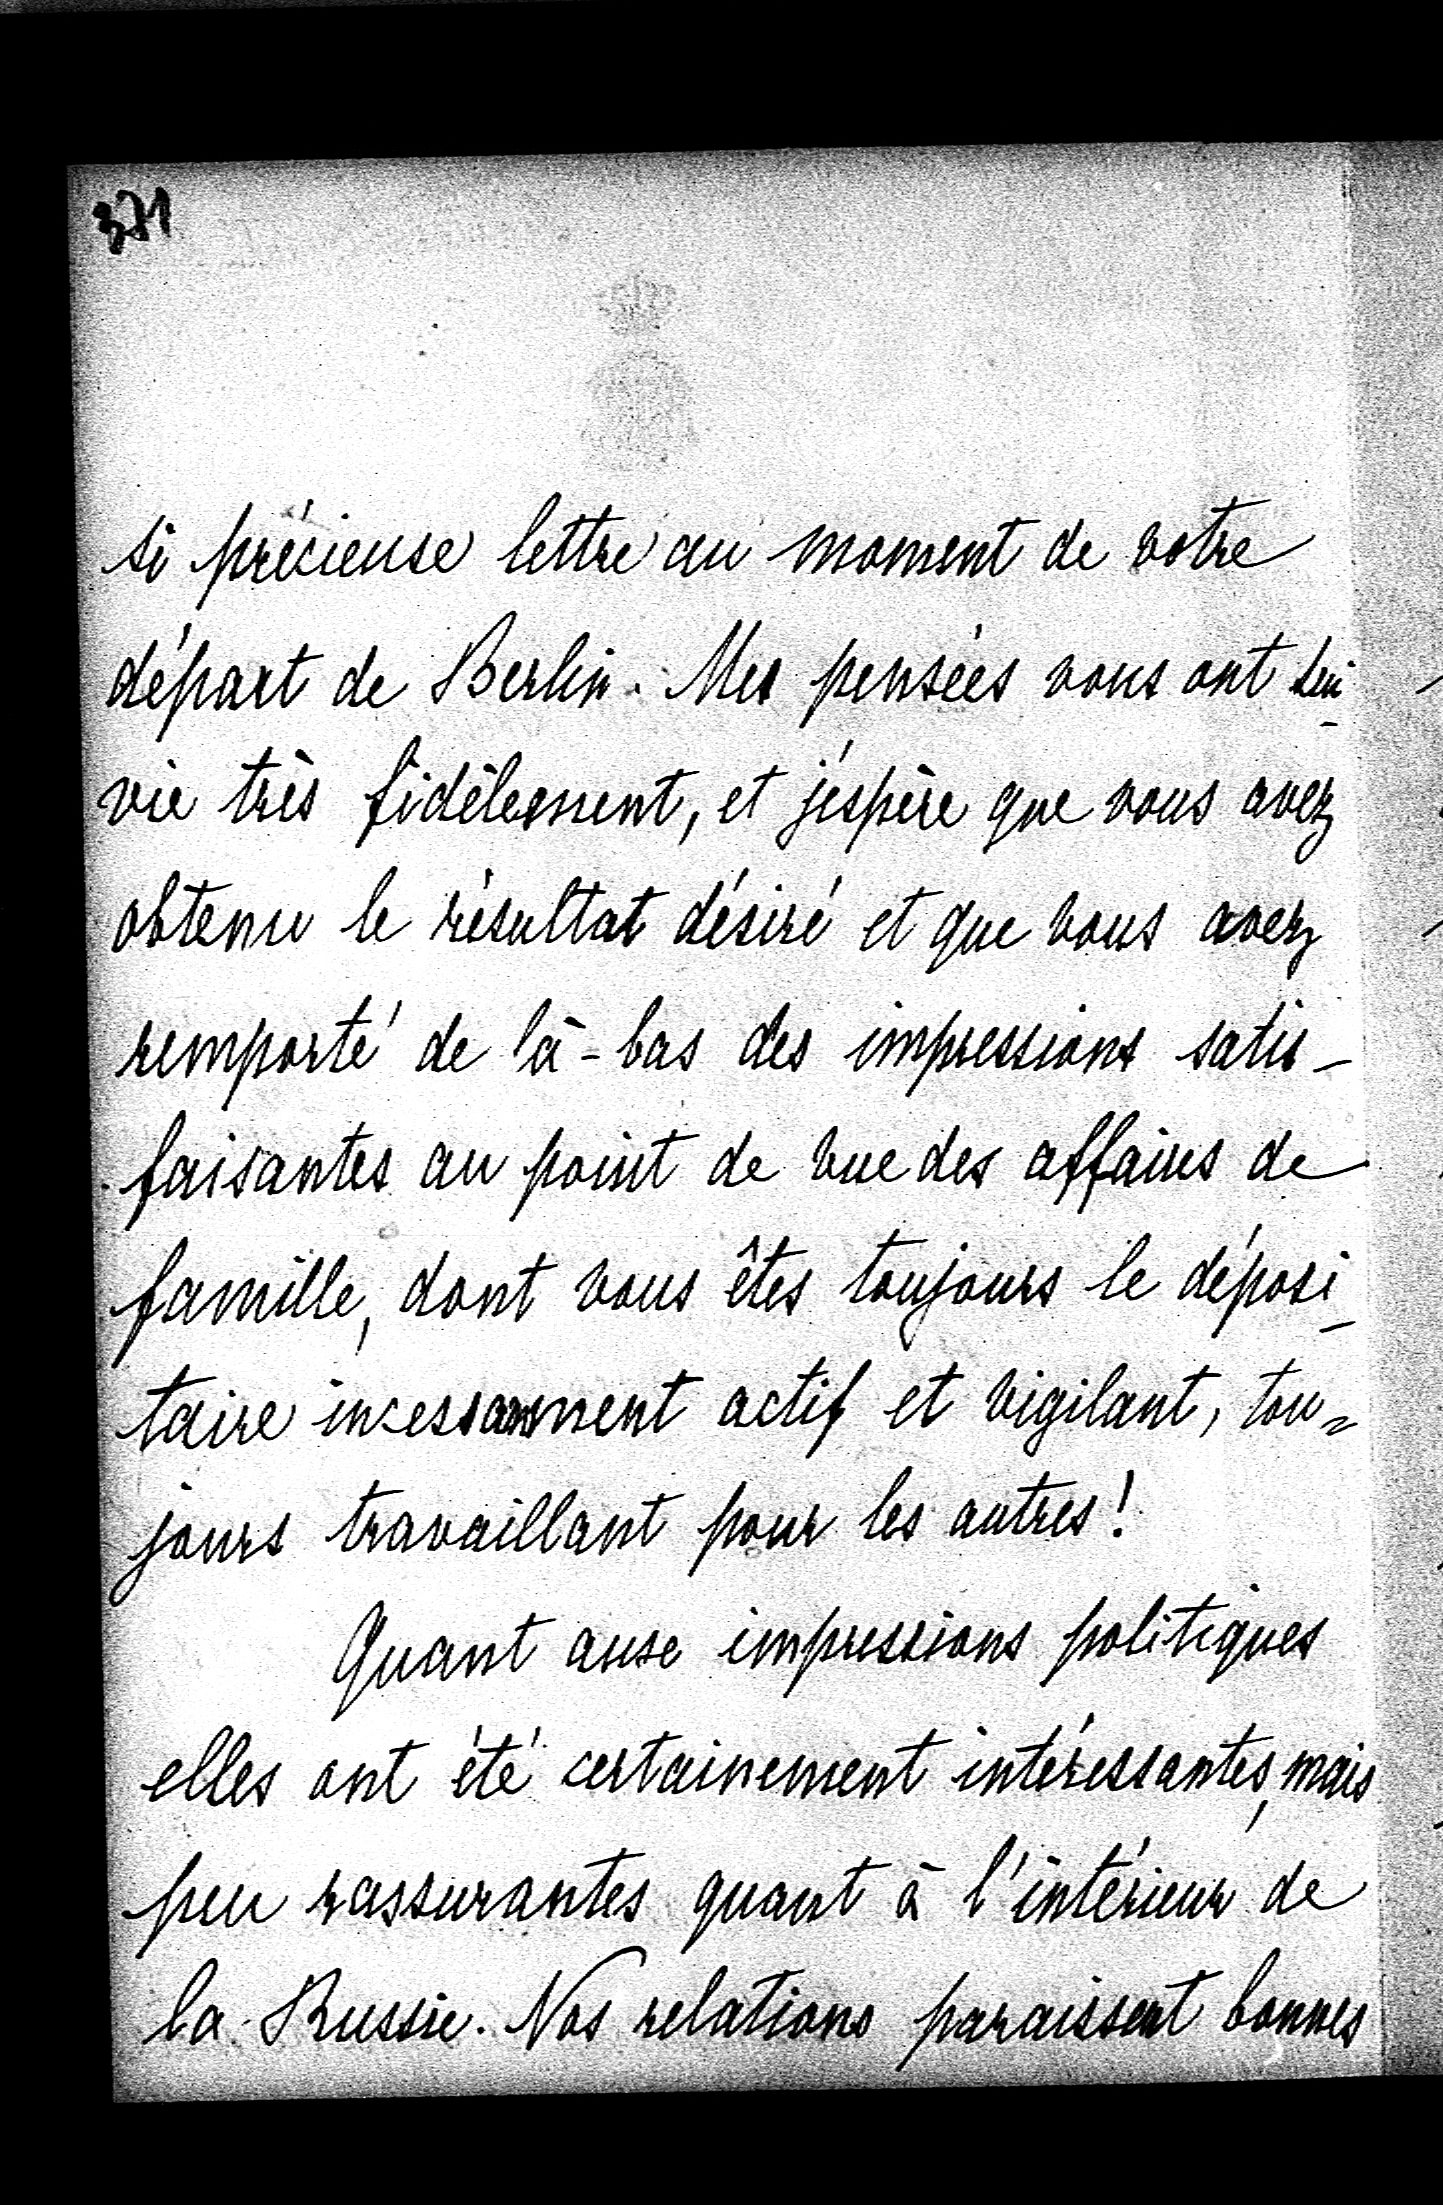 371
si précieuse lettre au moment de votre
départ de Berlin. Mes pensées vous ont sui-
vie très fidèlement, et j'espère que vous avez
obtenu le résultat désiré et que vous avez
remporté de là-bas des impressions satis-
faisantes au point de vue des affaires de
famille, dont vous êtes toujours le déposi-
taire incessamment actif et vigilant, tou=
jours travaillant pour les autres!
Quant aux impressions politiques
elles ont été certainement intéressantes, mais
peu rassurantes quant à l'intérieur de
la Russie. Nos relations paraissent bonnes